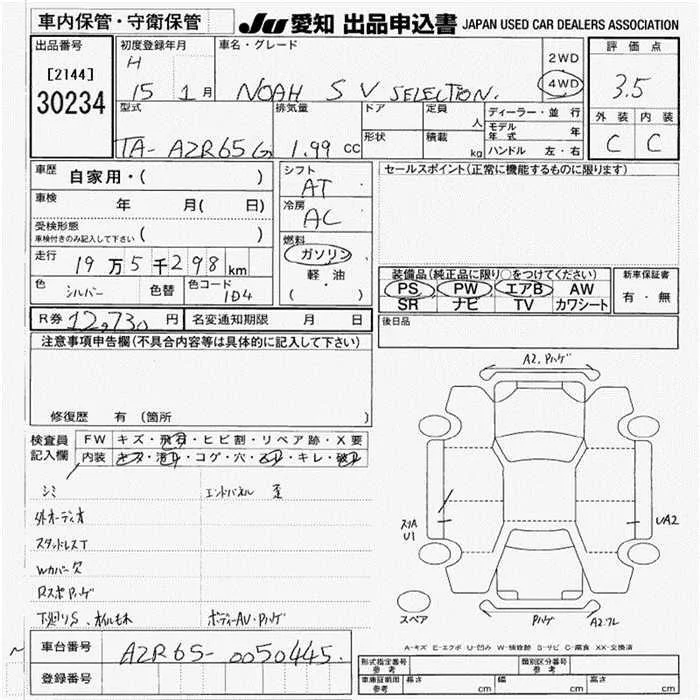 車内保管・守衛保管
JU 愛知 出品申込書 JAPAN USED CAR DEALERS ASSOCIATION
出品番号
[2144]
30234
初度登録年月
H
15 1月
車名・グレード
NOAH S V SELECTION.
2WD
4WD
評価点
3.5
外装 内装
C C
型式
TA-AZR65G
排気量
1.99 cc
ドア
形状
定員
人
積載
kg
ディーラー・並行
モデル年式 年
ハンドル 左・右
車歴 自家用・( )
車検 年 月( 日)
受検形態
車検付きのみ記入して下さい ( )
走行 19万5千298km
色 シルバー 色替 色コード 1D4
シフト
AT
冷房
AC
燃料
ガソリン
軽・油
( ・ )
セールスポイント(正常に機能するものに限ります)
装備品(純正品に限り○をつけてください)
PS PW エアB AW
SR ナビ TV カワシート
新車保証書
有・無
後日品
R券 12,730円 名変通知期限 月 日
注意事項申告欄(不具合内容等は具体的に記入して下さい)
修復歴 有(箇所 )
検査員記入欄
FW キズ・飛石・ヒビ割・リペア跡・X要
内装 キズ・汚れ・コゲ・穴・スレ・キレ・破れ
シミ エンドパネル 歪
外オーディオ
スタッドレスT
Wカバー欠
RスポPハゲ
下廻りS、
ボディーAV・Pハゲ
A2.Pハゲ
スリA
U1
UA2
スペア
Pハゲ
A2.フレ
A-キズ E-エクボ U-凹み W-補修跡 S-サビ C-腐食 XX-交換済
車台番号 AZR65-0050445.
登録番号
形式指定番号 参考
類別区分番号 参考
車庫証明用 参考 長さ cm 幅 cm 高さ cm